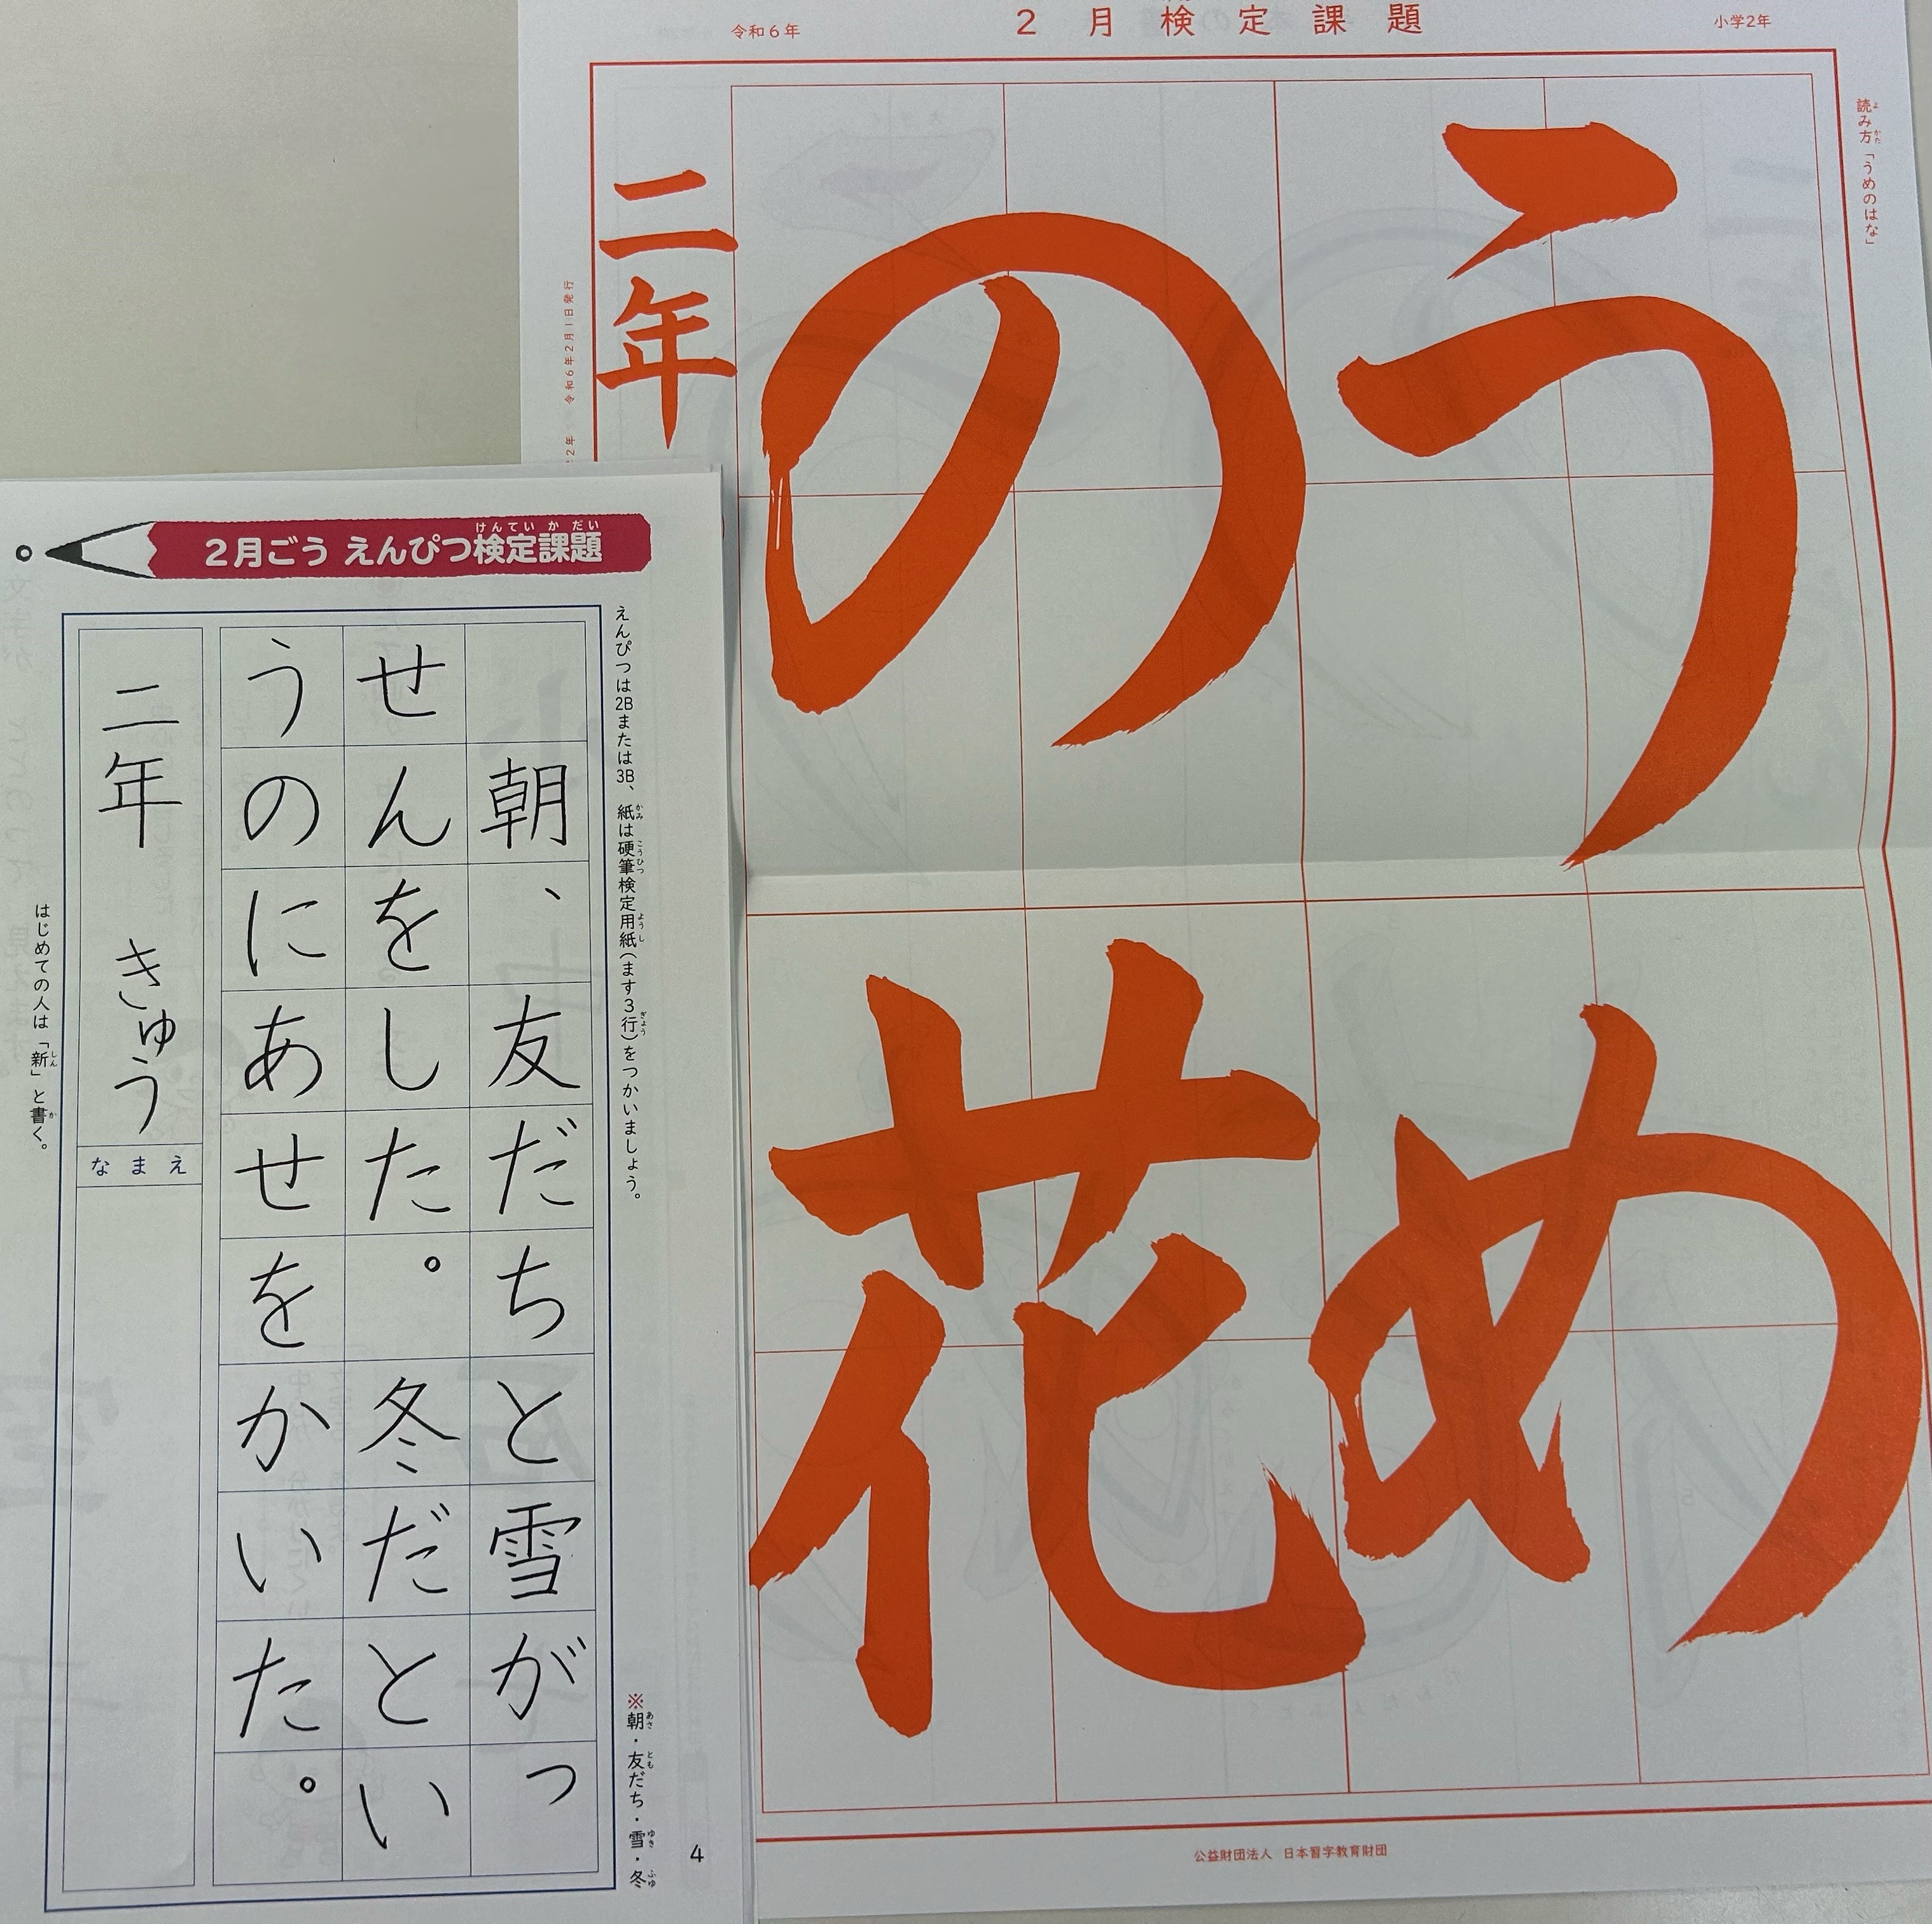 令和6年
2月検定課題
小学2年
読み方「うめのはな」
よ
かた
うめ
の花
二年
令和6年2月1日発行
公益財団法人 日本習字教育財団
けんていかだい
2月ごう えんぴつ検定課題
えんぴつは2Bまたは3B、紙は硬筆検定用紙(ます3行)をつかいましょう。
かみ
こうひつ
ようし
ぎょう
※朝・友だち・雪・冬
あさ
とも
ゆき
ふゆ
朝、友だちと雪がっ
せんをした。冬だとい
うのにあせをかいた。
二年 きゅう
なまえ
はじめての人は「新」と書く。
しん
か
4